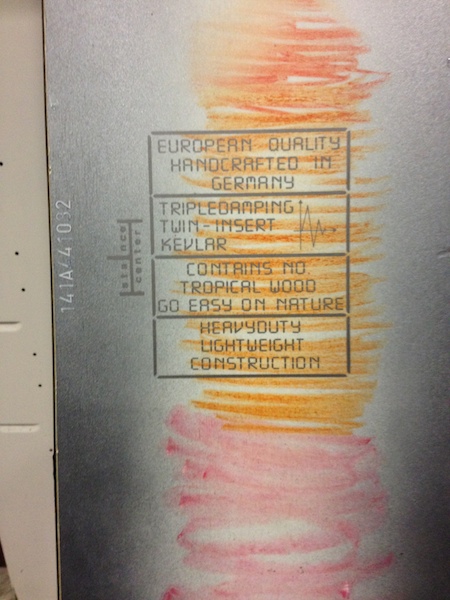 EUROPEAN QUALITY
HANDCRAFTED IN
GERMANY
TRIPLEDAMPING
TWIN-INSERT
KEVLAR
CONTAINS NO.
TROPICAL WOOD
GO EASY ON NATURE
HEAVYDUTY
LIGHTWEIGHT
CONSTRUCTION
center
141A/41032